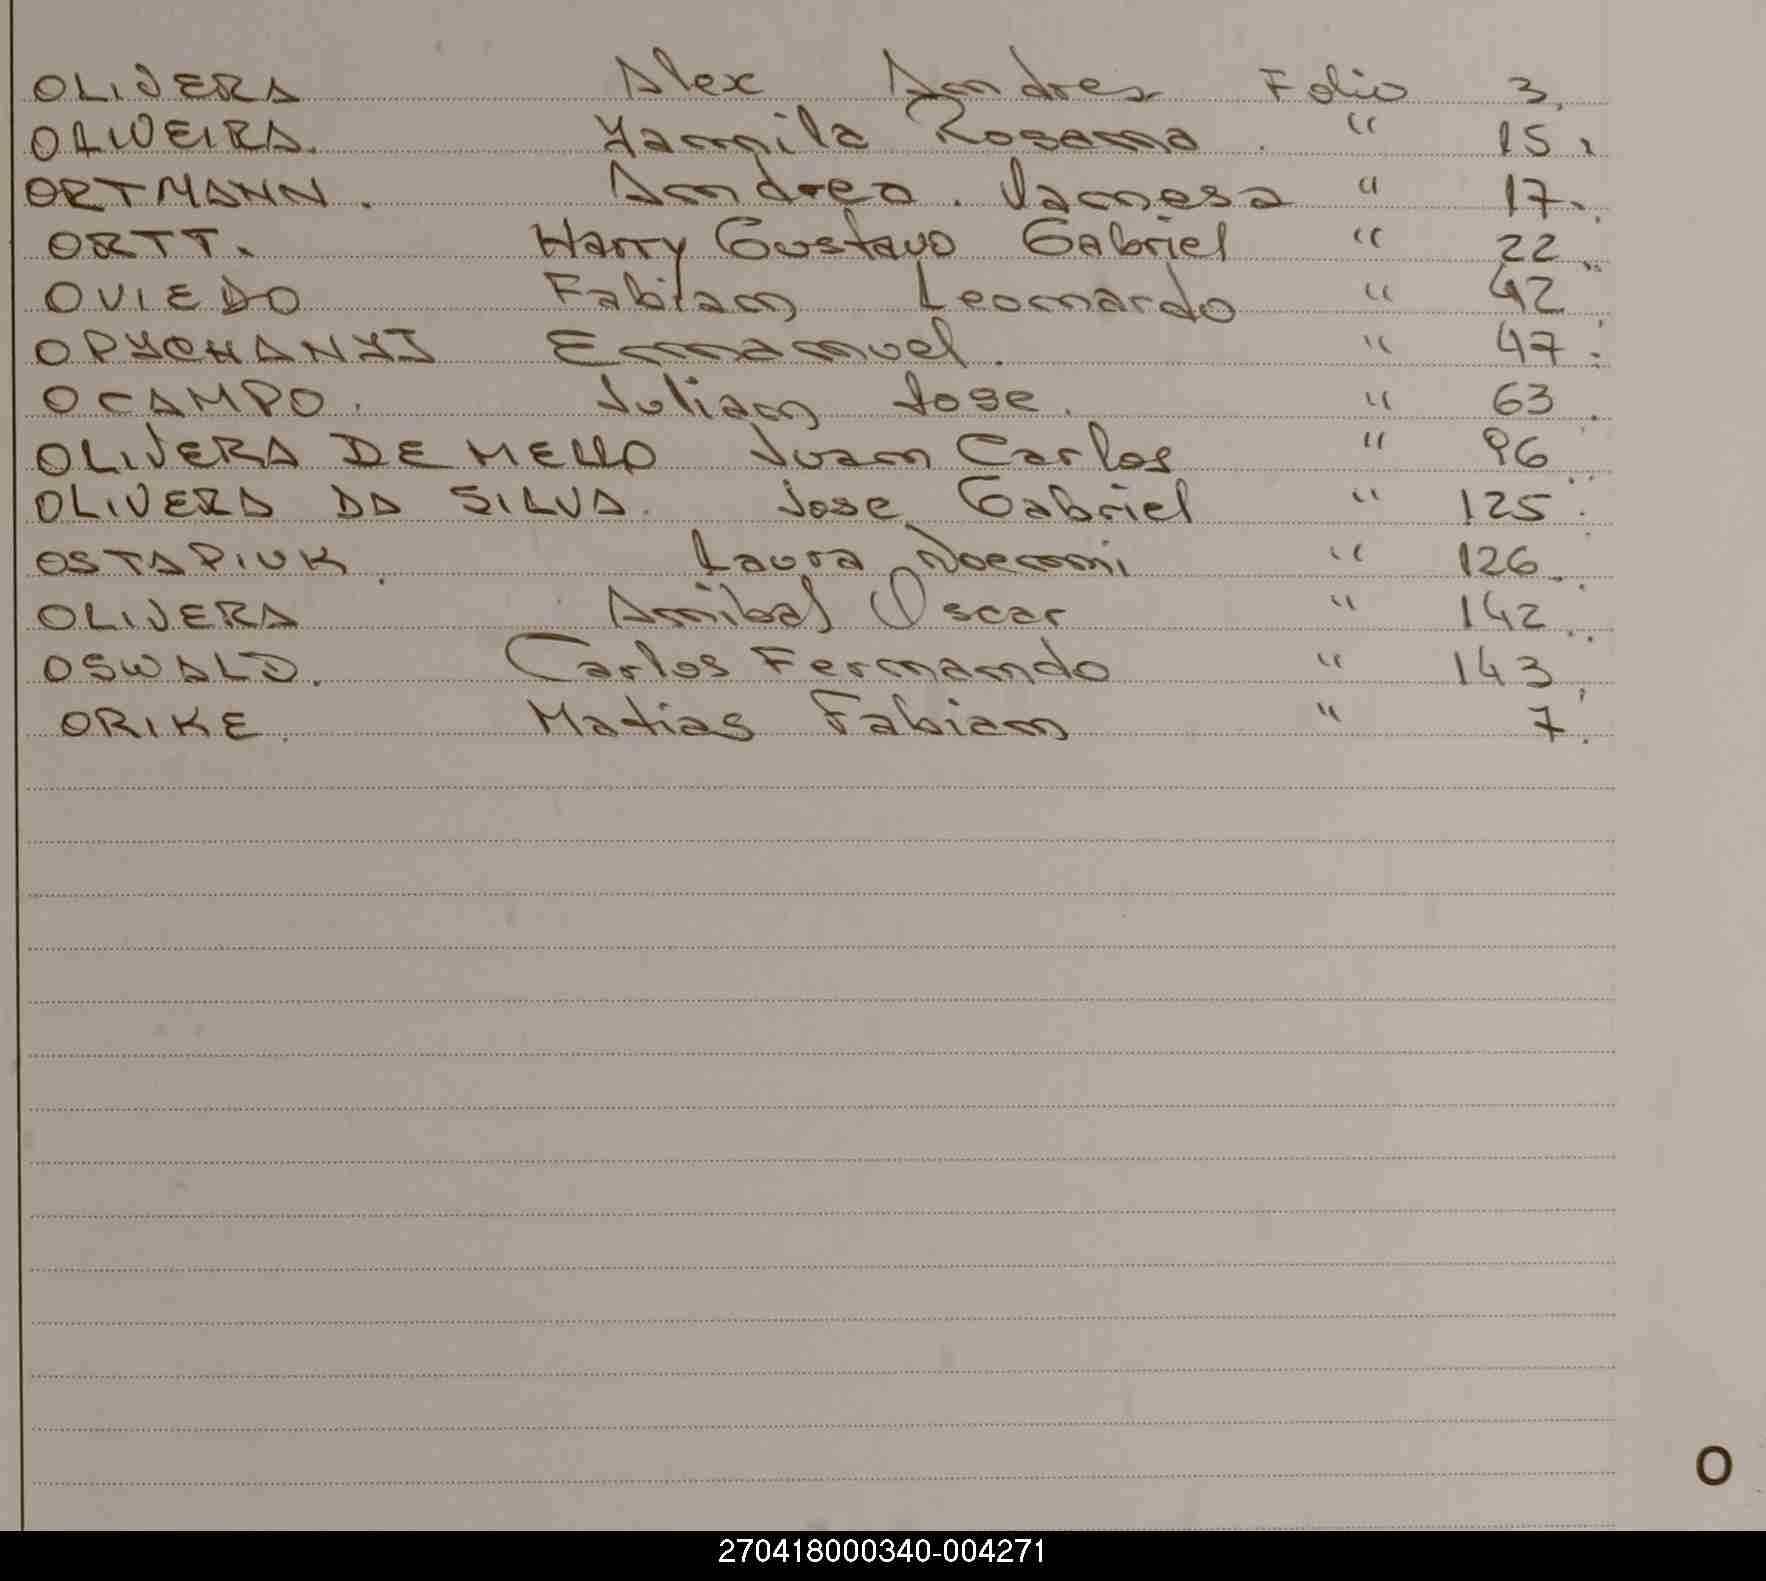 OLIVERA Alex Andres Folio 3.
OLIVEIRA. Yamila Rosana " 15.
ORTMANN. Andrea Vanesa " 17.
ORTT. Harry Gustavo Gabriel " 22
OVIEDO Fabian Leonardo " 42
Emmanuel. " 47
OCAMPO. Julian Jose. " 63.
OLIVERA DE MELLO Juan Carlos " 96
OLIVERA DA SILVA. Jose Gabriel " 125
OSTAPIUK. Laura Noemi " 126
OLIVERA Anibal Oscar " 142
OSWALD. Carlos Fernando " 143
ORIKE. Matias Fabian " 7.
O
270418000340-004271